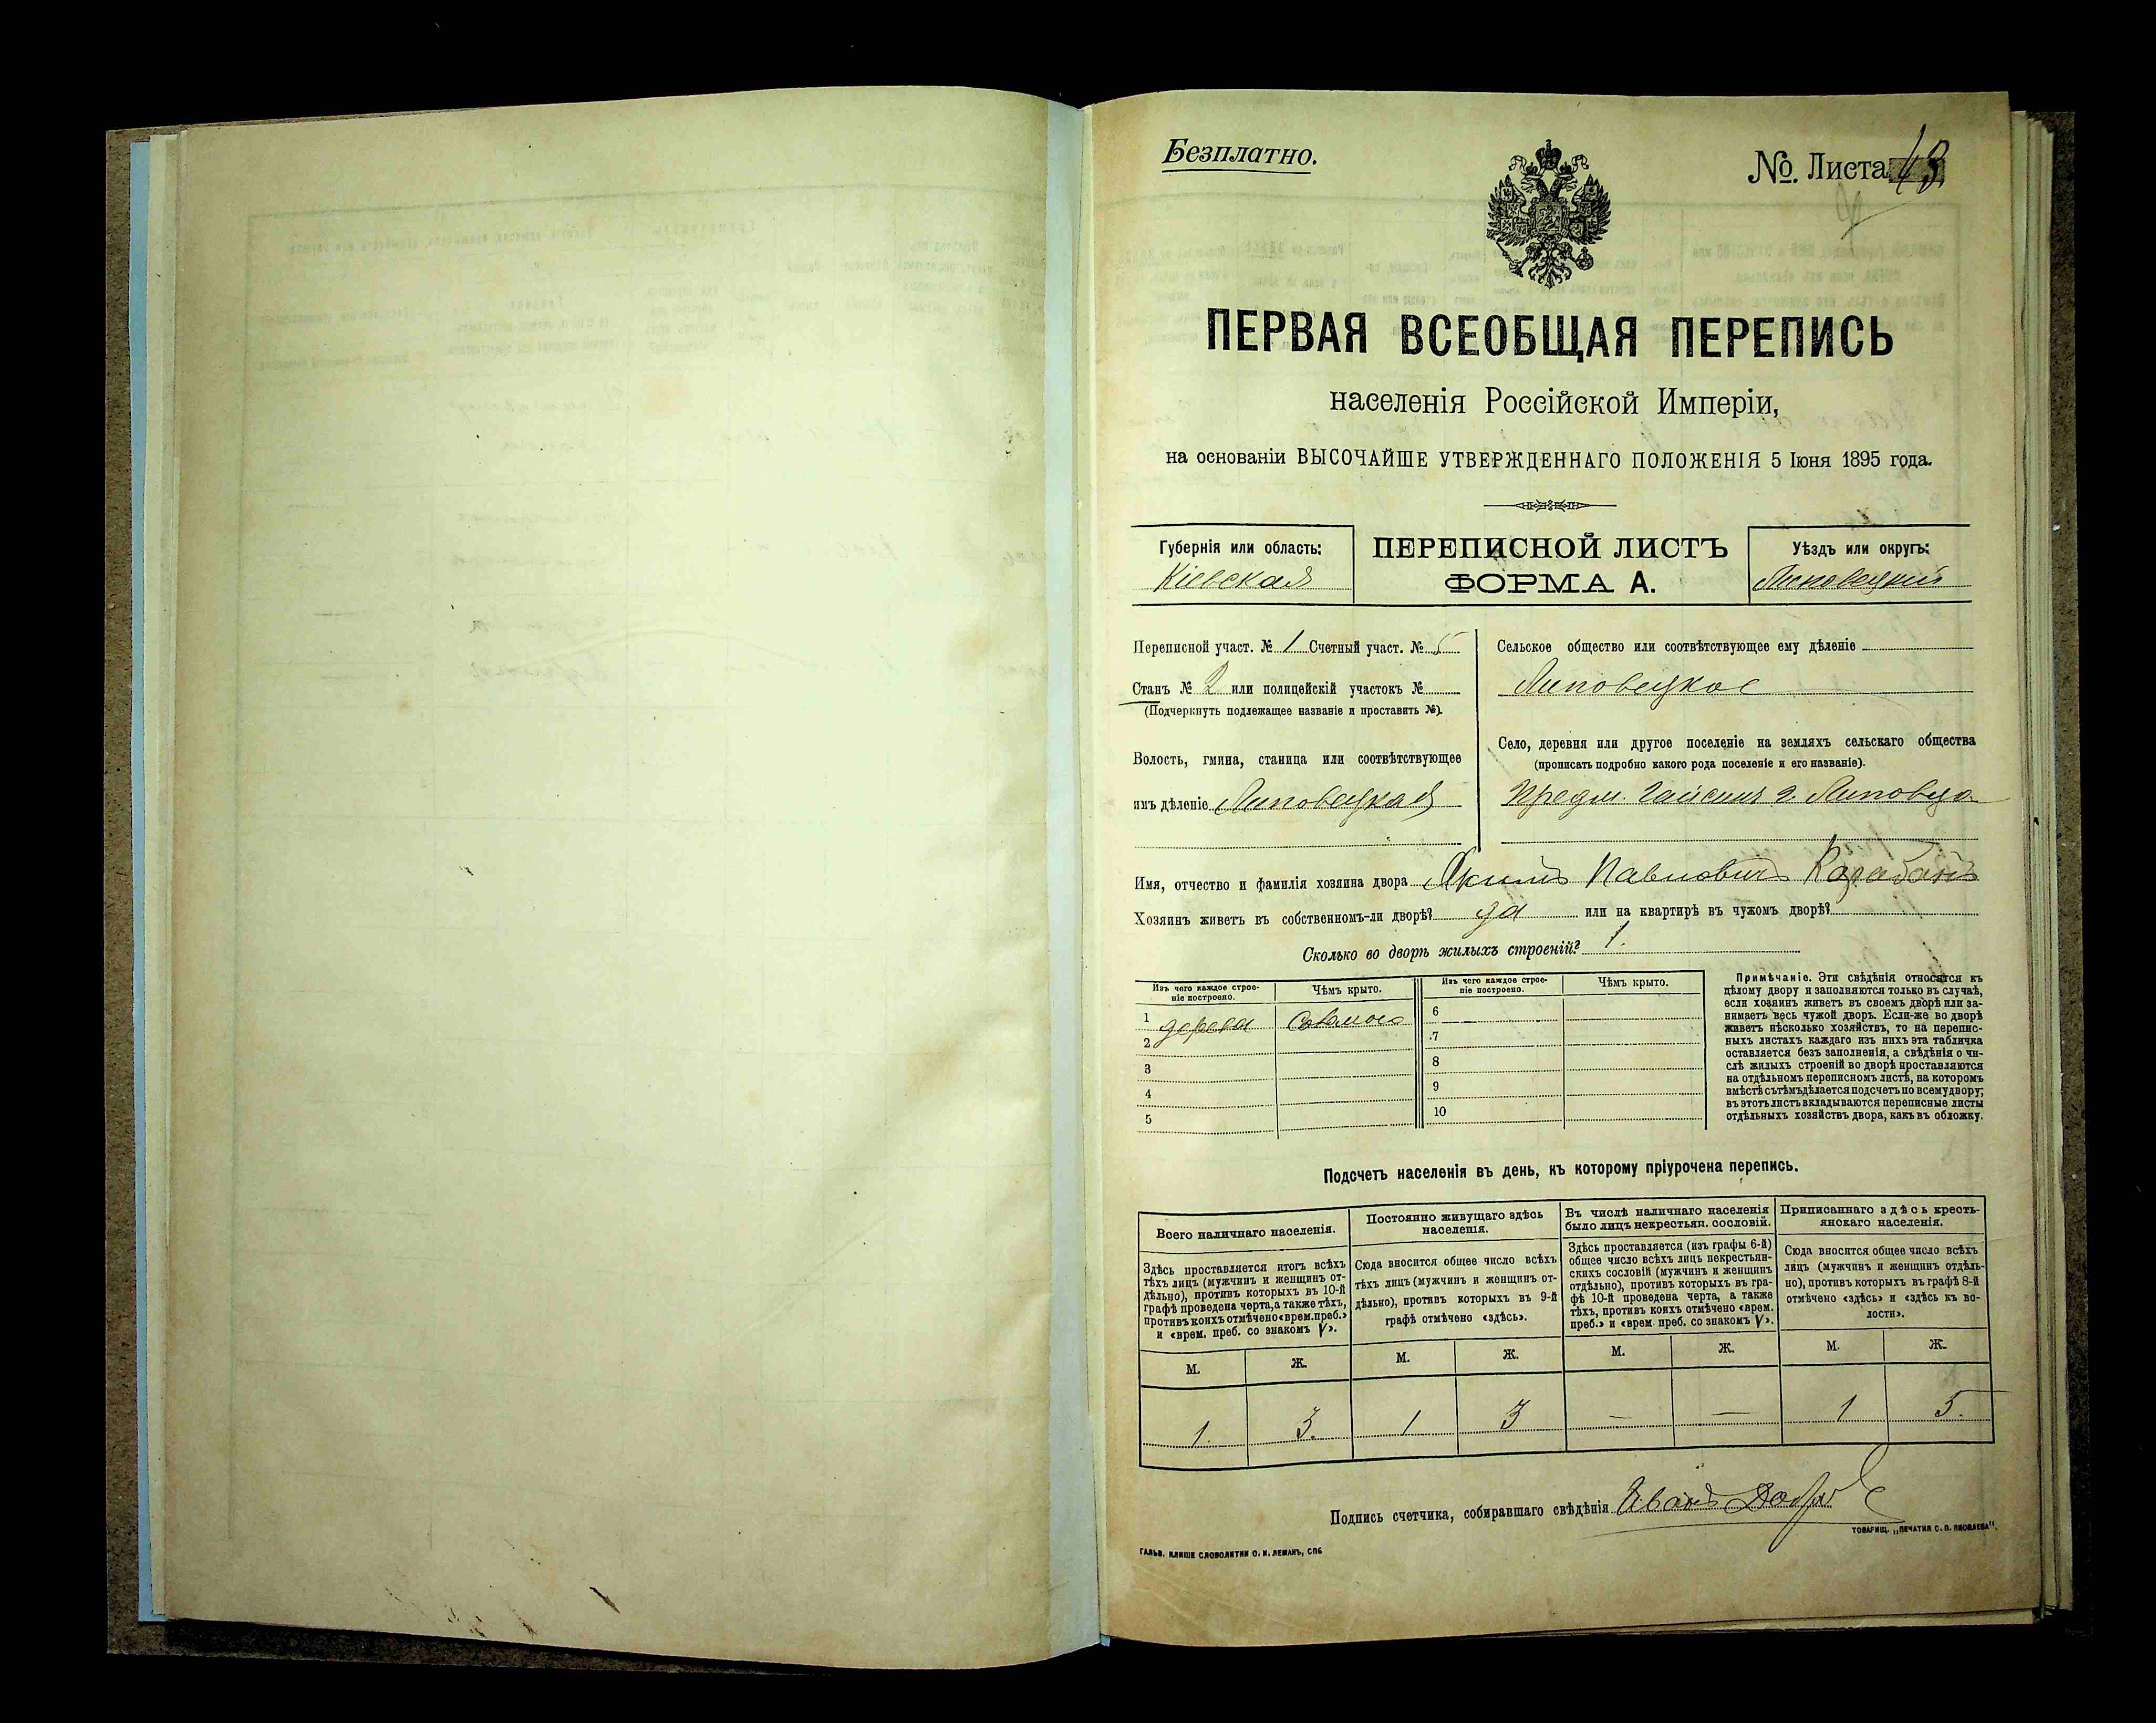 Безплатно.
№. Листа 43
ПЕРВАЯ ВСЕОБЩАЯ ПЕРЕПИСЬ
населенія Россійской Имперіи,
на основаніи ВЫСОЧАЙШЕ УТВЕРЖДЕННАГО ПОЛОЖЕНІЯ 5 Іюня 1895 года.
Губернія или область:
Кіевская
ПЕРЕПИСНОЙ ЛИСТЪ
ФОРМА А.
Уѣздъ или округъ:
Липовецкій
Переписной участ. № 1 Счетный участ. № 5
Станъ № 2 или полицейскій участокъ №
(Подчеркнуть подлежащее названіе и проставить №).
Волость, гмина, станица или соотвѣтствующее
имъ дѣленіе Липовецкая
Сельское общество или соотвѣтствующее ему дѣленіе
Липовецкое
Село, деревня или другое поселеніе на земляхъ сельскаго общества
(прописать подробно какого рода поселеніе и его названіе).
Предм. Гайсинъ г. Липовца
Имя, отчество и фамилія хозяина двора Якимъ Павловичъ Карабанъ
Хозяинъ живетъ въ собственномъ-ли дворѣ? да или на квартирѣ въ чужомъ дворѣ?
Сколько во дворѣ жилыхъ строеній? 1.
Изъ чего каждое строе-
ніе построено.
Чѣмъ крыто.
1 дерева Соломою
2
3
4
5
Изъ чего каждое строе-
ніе построено.
Чѣмъ крыто.
6
7
8
9
10
Примѣчаніе. Эти свѣдѣнія относятся къ
цѣлому двору и заполняются только въ случаѣ,
если хозяинъ живетъ въ своемъ дворѣ или за-
нимаетъ весь чужой дворъ. Если-же во дворѣ
живетъ нѣсколько хозяйствъ, то на перепис-
ныхъ листахъ каждаго изъ нихъ эта табличка
оставляется безъ заполненія, а свѣдѣнія о чи-
слѣ жилыхъ строеній во дворѣ проставляются
на отдѣльномъ переписномъ листѣ, на которомъ
вмѣстѣ съ тѣмъ дѣлается подсчетъ по всему двору;
въ этотъ листъ вкладываются переписные листы
отдѣльныхъ хозяйствъ двора, какъ въ обложку.
Подсчетъ населенія въ день, къ которому пріурочена перепись.
Всего наличнаго населенія.
Здѣсь проставляется итогъ всѣхъ
тѣхъ лицъ (мужчинъ и женщинъ от-
дѣльно), противъ которыхъ въ 10-й
графѣ проведена черта, а также тѣхъ,
противъ коихъ отмѣчено «врем. преб.»
и «врем. преб. со знакомъ V».
Постоянно живущаго здѣсь
населенія.
Сюда вносится общее число всѣхъ
тѣхъ лицъ (мужчинъ и женщинъ от-
дѣльно), противъ которыхъ въ 9-й
графѣ отмѣчено «здѣсь».
Въ числѣ наличнаго населенія
было лицъ некрестьян. сословій.
Здѣсь проставляется (изъ графы 6-й)
общее число всѣхъ лицъ некрестьян-
скихъ сословій (мужчинъ и женщинъ
отдѣльно), противъ которыхъ въ гра-
фѣ 10-й проведена черта, а также
тѣхъ, противъ коихъ отмѣчено «врем.
преб.» и «врем. преб. со знакомъ V».
Приписаннаго здѣсь кресть-
янскаго населенія.
Сюда вносится общее число всѣхъ
лицъ (мужчинъ и женщинъ отдѣль-
но), противъ которыхъ въ графѣ 8-й
отмѣчено «здѣсь» и «здѣсь къ во-
лости».
М. Ж. М. Ж. М. Ж. М. Ж.
1. 3. 1 3 — — 1 5.
Подпись счетчика, собиравшаго свѣдѣнія Иванъ
ГАЛЬВ. КЛИШЕ СЛОВОЛИТНИ О. И. ЛЕМАНЪ, СПБ
ТОВАРИЩ. „ПЕЧАТНЯ С. П. ЯКОВЛЕВА“.